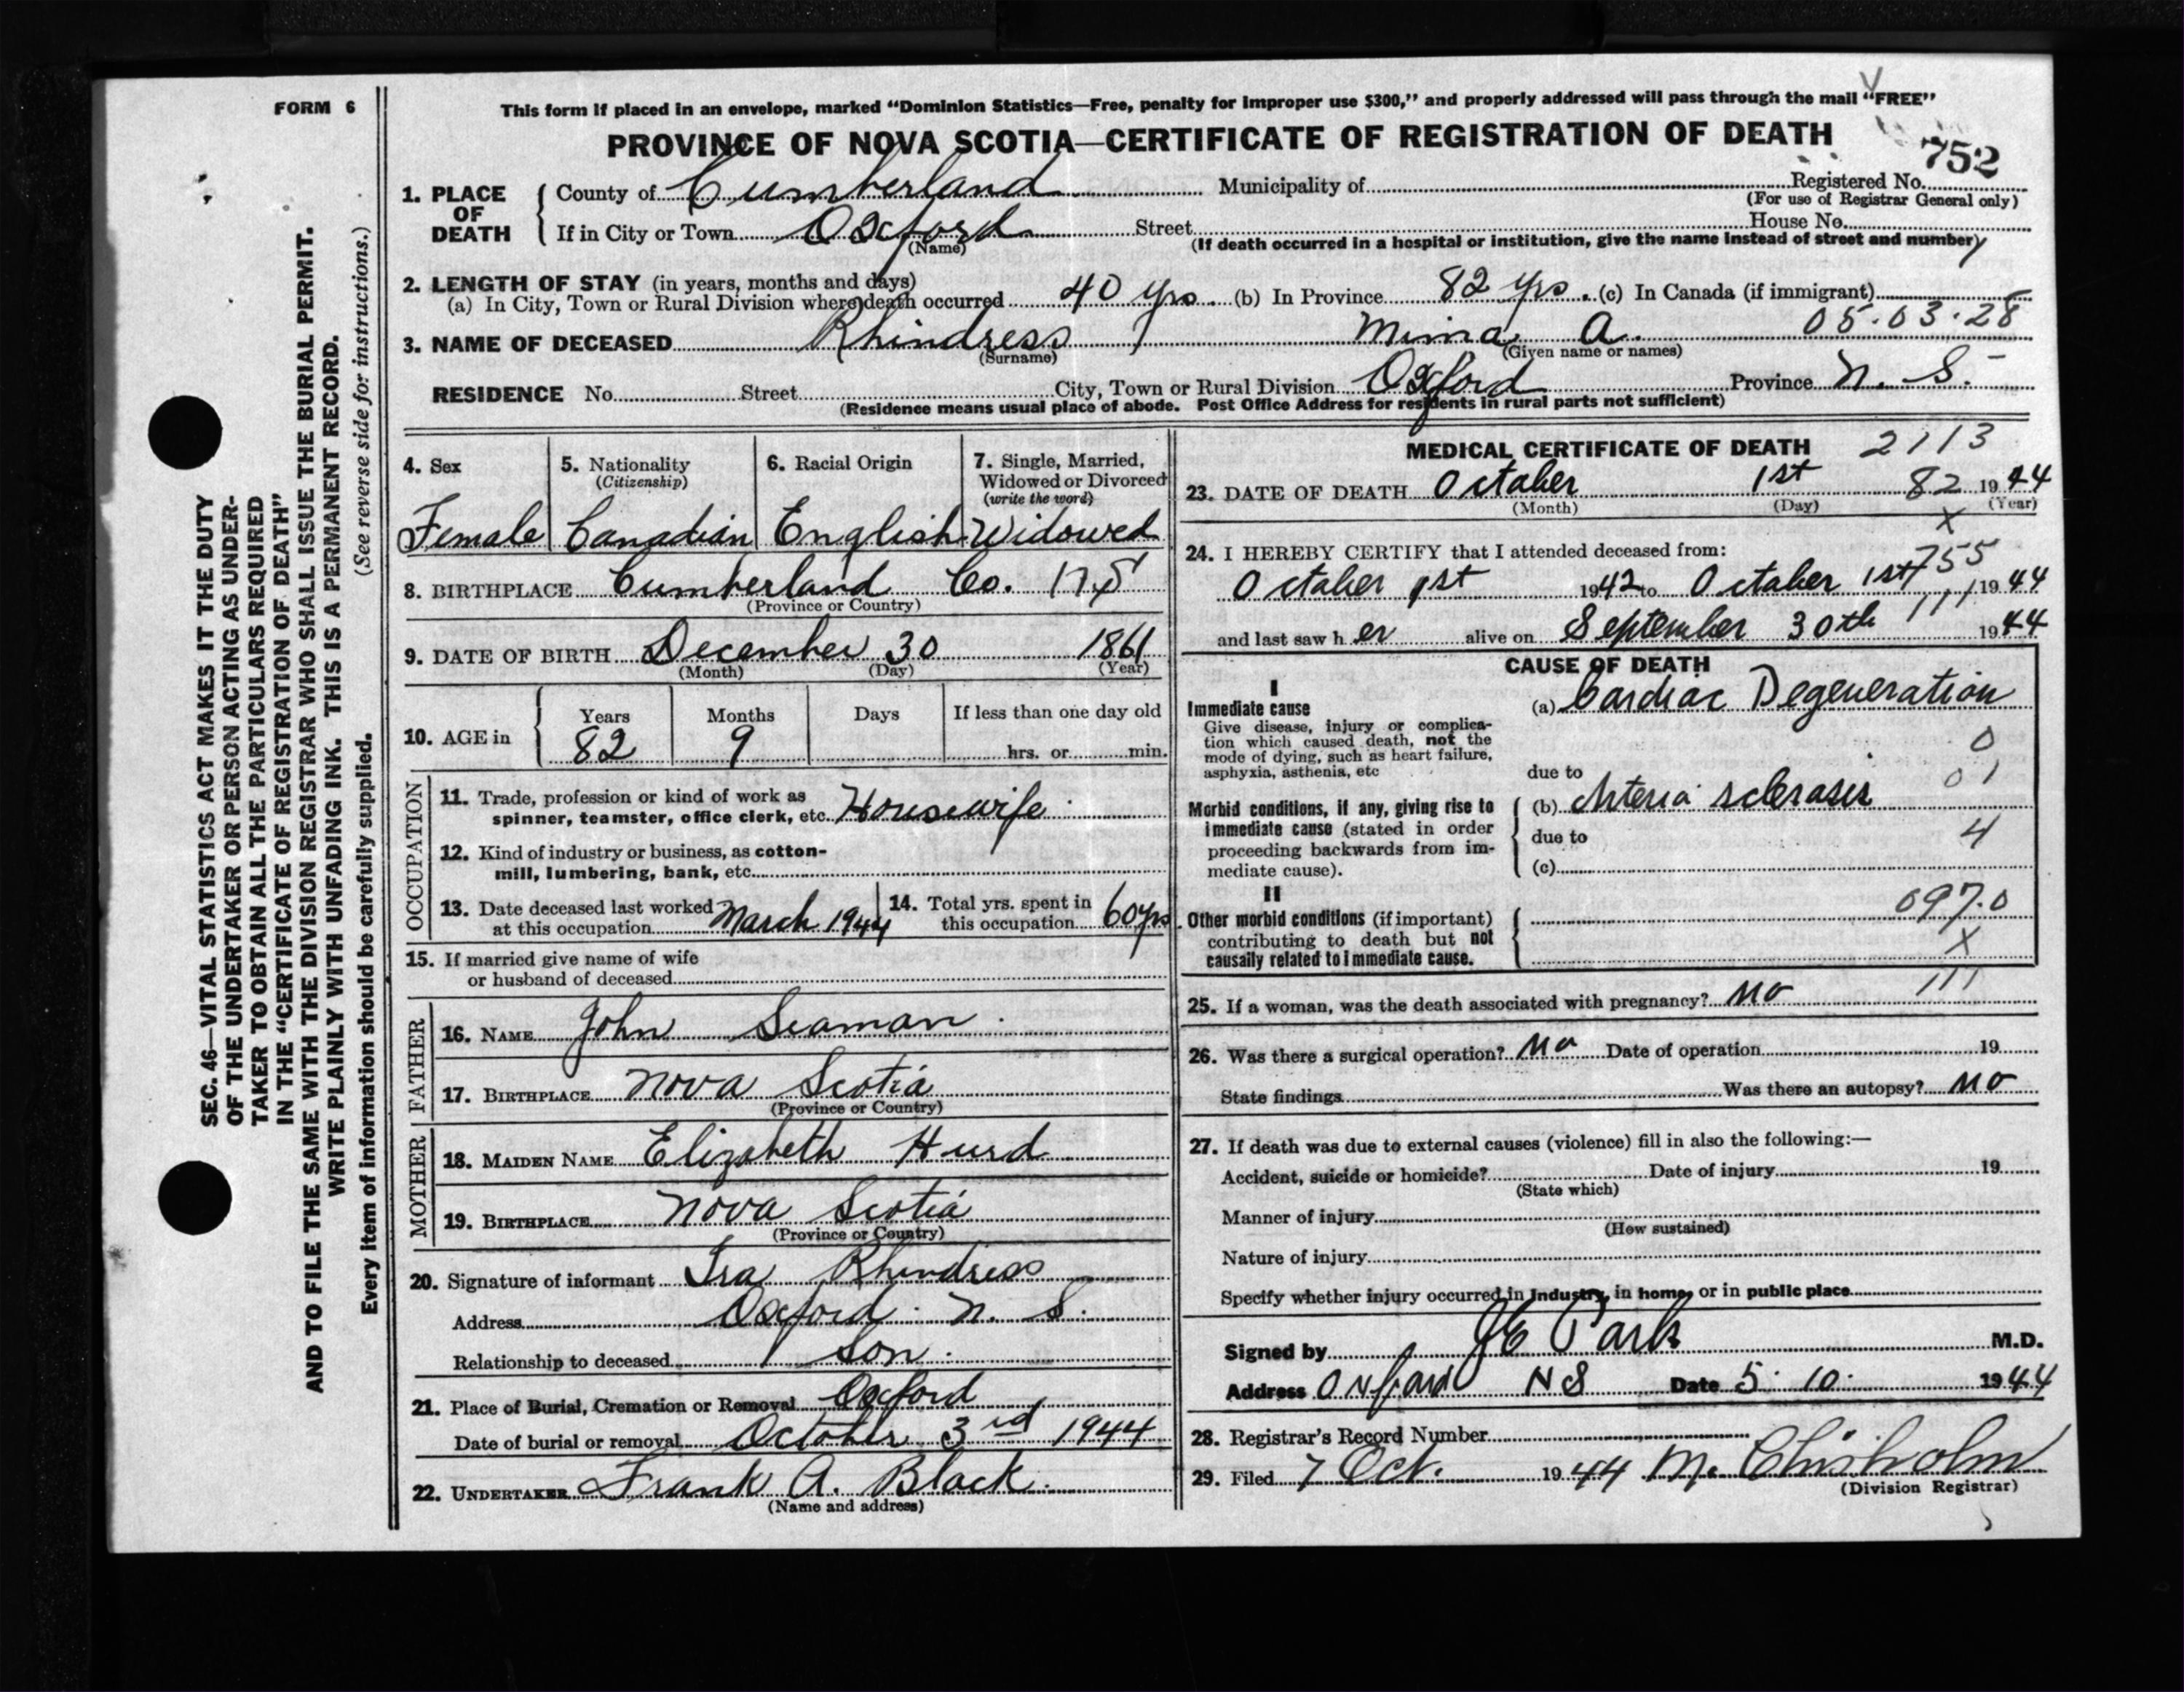 FORM 6
This form if placed in an envelope, marked "Dominion Statistics—Free, penalty for improper use $300," and properly addressed will pass through the mail "FREE"
PROVINCE OF NOVA SCOTIA—CERTIFICATE OF REGISTRATION OF DEATH
752
1. PLACE OF DEATH
County of Cumberland Municipality of Registered No.
(For use of Registrar General only)
If in City or Town Oxford Street House No.
(Name) (If death occurred in a hospital or institution, give the name instead of street and number)
2. LENGTH OF STAY (in years, months and days)
(a) In City, Town or Rural Division where death occurred 40 yrs. (b) In Province 82 yrs. (c) In Canada (if immigrant)
05.03.28
3. NAME OF DECEASED Rhindress Mima A.
(Surname) (Given name or names)
RESIDENCE No. Street City, Town or Rural Division Oxford Province N. S.
(Residence means usual place of abode. Post Office Address for residents in rural parts not sufficient)
4. Sex 5. Nationality (Citizenship) 6. Racial Origin 7. Single, Married, Widowed or Divorced (write the word)
Female Canadian English Widowed
8. BIRTHPLACE Cumberland Co. N.S
(Province or Country)
9. DATE OF BIRTH December 30 1861
(Month) (Day) (Year)
10. AGE in Years Months Days If less than one day old
82 9 hrs. or min.
OCCUPATION
11. Trade, profession or kind of work as
spinner, teamster, office clerk, etc. Housewife
12. Kind of industry or business, as cotton-
mill, lumbering, bank, etc.
13. Date deceased last worked
at this occupation March 1944
14. Total yrs. spent in
this occupation 60 yrs
15. If married give name of wife
or husband of deceased
FATHER
16. NAME John Seaman
17. BIRTHPLACE Nova Scotia
(Province or Country)
MOTHER
18. MAIDEN NAME Elizabeth Hurd
19. BIRTHPLACE Nova Scotia
(Province or Country)
20. Signature of informant Ira Rhindress
Address Oxford N. S.
Relationship to deceased Son
21. Place of Burial, Cremation or Removal Oxford
Date of burial or removal October 3rd 1944
22. UNDERTAKER Frank A. Black
(Name and address)
MEDICAL CERTIFICATE OF DEATH 2113
23. DATE OF DEATH October 1st 82 1944
(Month) (Day) (Year)
X
24. I HEREBY CERTIFY that I attended deceased from:
755
October 1st 1942 to October 1st 1944
111
and last saw h er alive on September 30th 1944
CAUSE OF DEATH
I
Immediate cause (a) Cardiac Degeneration
Give disease, injury or complica-
tion which caused death, not the
mode of dying, such as heart failure,
asphyxia, asthenia, etc
0
due to 01
Morbid conditions, if any, giving rise to
immediate cause (stated in order
proceeding backwards from im-
mediate cause).
(b) Arteria sclerosis
due to 4
(c)
II
Other morbid conditions (if important)
contributing to death but not
causally related to immediate cause.
097.0
X
111
25. If a woman, was the death associated with pregnancy? No
26. Was there a surgical operation? No Date of operation 19
State findings Was there an autopsy? No
27. If death was due to external causes (violence) fill in also the following:—
Accident, suicide or homicide? Date of injury 19
(State which)
Manner of injury
(How sustained)
Nature of injury
Specify whether injury occurred in industry, in home, or in public place
Signed by JE Park M.D.
Address Oxford N S Date 5. 10. 1944
28. Registrar's Record Number
29. Filed 7 Oct. 1944 M. Chisholm
(Division Registrar)
SEC. 46—VITAL STATISTICS ACT MAKES IT THE DUTY
OF THE UNDERTAKER OR PERSON ACTING AS UNDER-
TAKER TO OBTAIN ALL THE PARTICULARS REQUIRED
IN THE "CERTIFICATE OF REGISTRATION OF DEATH"
AND TO FILE THE SAME WITH THE DIVISION REGISTRAR WHO SHALL ISSUE THE BURIAL PERMIT.
WRITE PLAINLY WITH UNFADING INK. THIS IS A PERMANENT RECORD.
Every item of information should be carefully supplied. (See reverse side for instructions.)